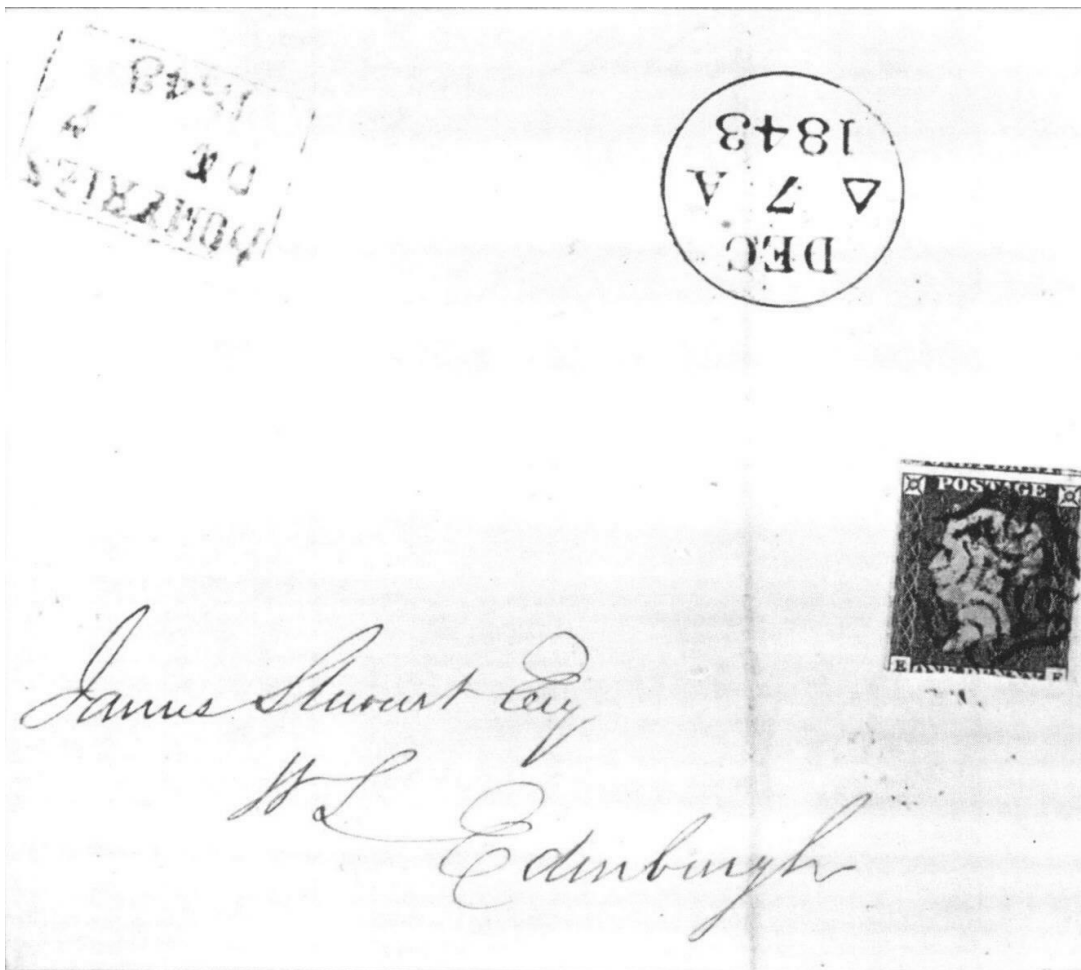 DUMFRIES
DE 7
1843
DEC
△ 7 A
1843
POSTAGE
E E
James Stuart Esq
W S
Edinburgh